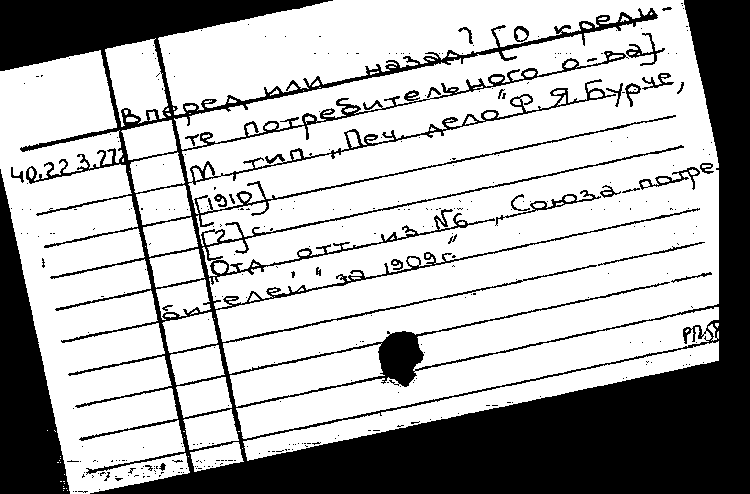 Вперед или назад? [О креди-
те потребительного о-ва]
М., тип. „Печ. дело" Ф. Я. Бурче,
40.22 3.272
[1910].
[2] с.
"Отд. отт. из №6 „Союза потре
бителей" за 1909г."